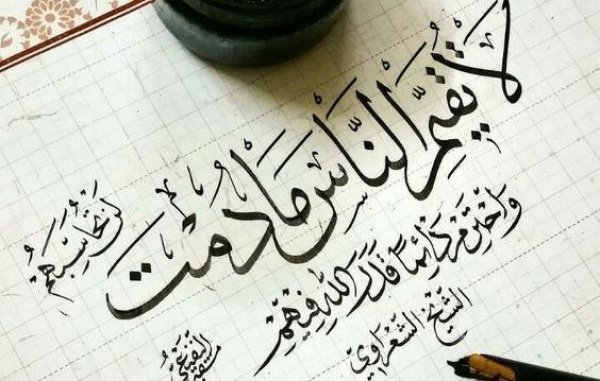 لا تُقيِّم النَّاسَ مَا دُمْتَ
لَنْ تُحَاسِبَهُمْ
وَاحْتَرِمْ دَائِمًا قَدَرَ اللهِ فِيْهِمْ
الشَّيْخ الشَّعْرَاوِي